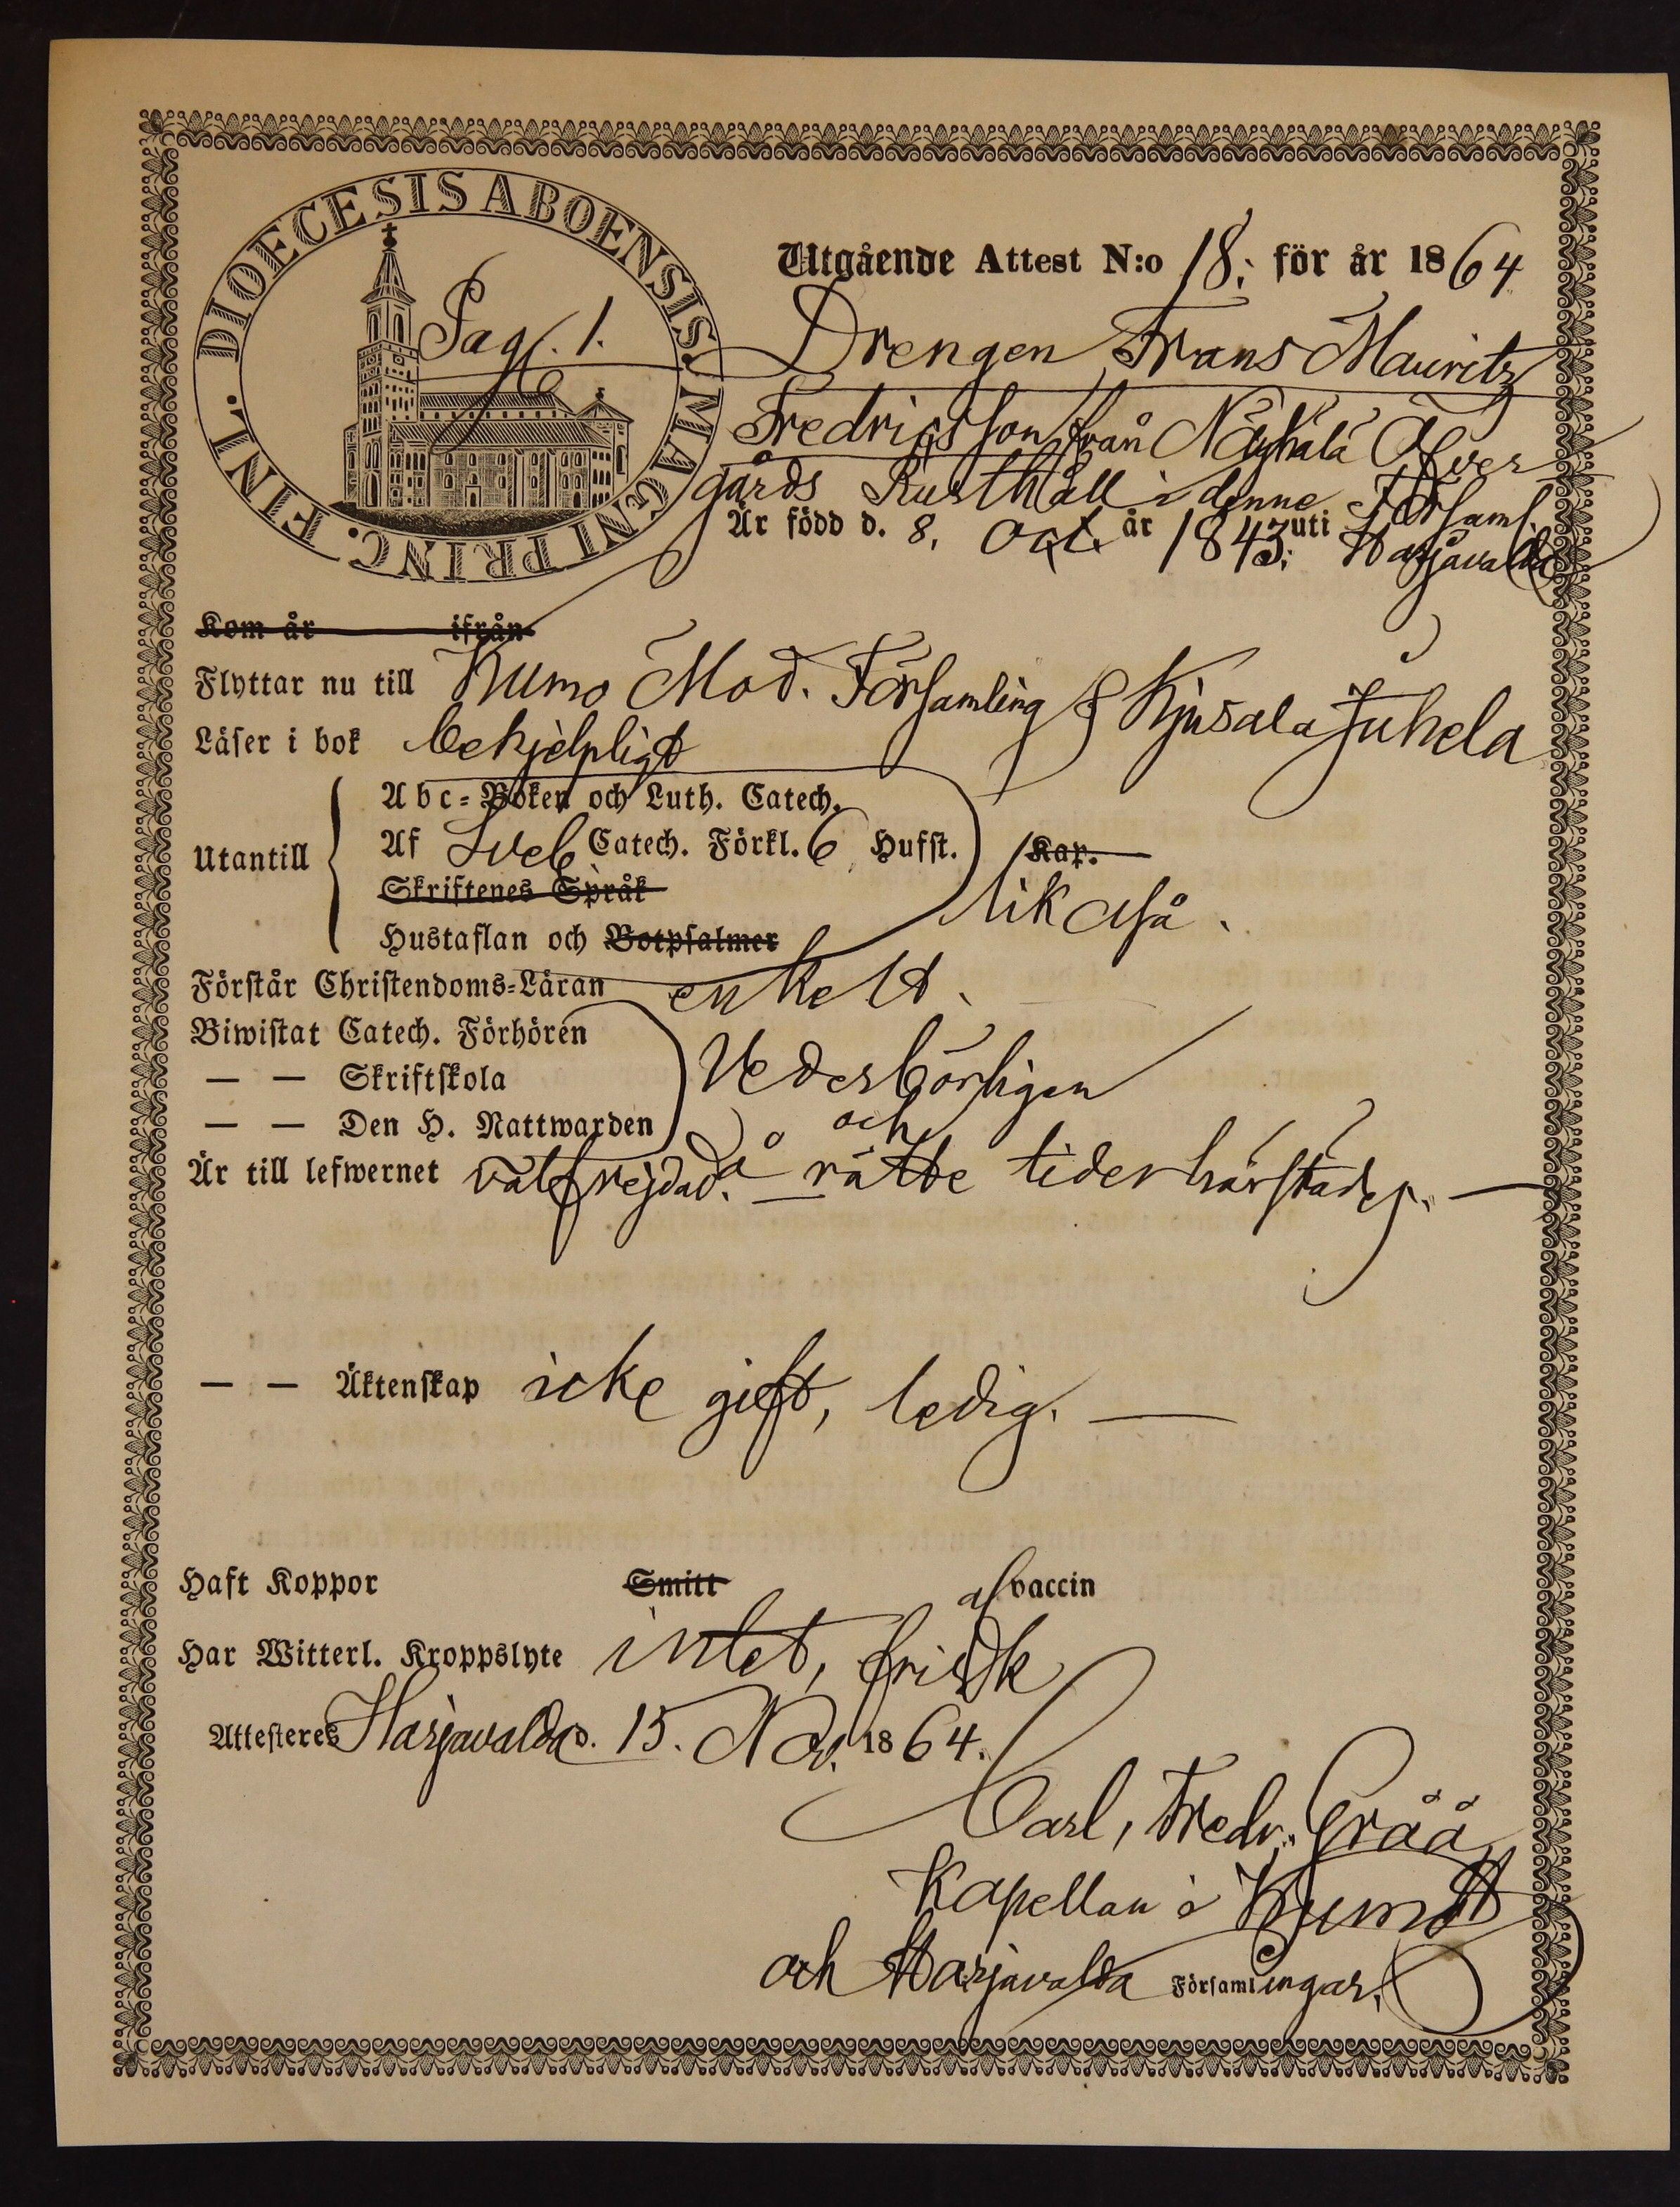 DIOECESIS ABOENSIS. MAGNI PRINC. FINL.
Pag. 1.
Utgående Attest N:o 18: för år 1864
Drengen Frans Mauritz
Fredricsson från
gårds Rusthåll i denne Församl.
Är född d. 8. Oct. år 1843: uti Harjavalda
Kom år ifrån
Flyttar nu till Kumo Mod. Församling & Kjusala Juhela
Läser i bok behjelpligt
Abc-Boken och Luth. Catech.
Utantill
Af Sveb Catech. Förkl. 6 Hufst. Kap.
Skriftenes Språk
likaså.
Hustaflan och Botpsalmer
Förstår Christendoms-Läran enkelt.
Biwistat Catech. Förhören
— — Skriftskola Vederbörligen
— — Den H. Nattwarden och
Är till lefwernet välfrejdad. å rätte tider härstädes. —
— — Äktenskap icke gift, ledig. —
Haft Koppor Smitt af vaccin
Har Witterl. Kroppslyte intet, frisk
Attesteres Harjavalda d. 15. Nov. 1864.
Carl, Fredr. Gråå
Kapellan i Kumo
och Harjavalda Församlingar.